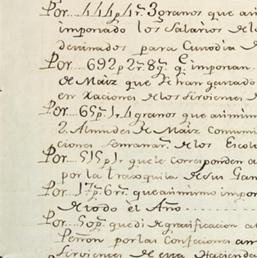 Por 444p 4r 3granos que asi
importado los Salarios de lo
derivados para Curodia de
Por 692p 2r 8g q importan
de Maiz que se han gastado
en raciones de los Sirvientes
Por 65p 1r 4granos que asimismo
2. Almudes de Maiz Comuni
ciones Semanar de los Escola
Por 515p 1r que le corresponden a
por la trasquila de sus Gan
Por 17p 6r que asimismo impor
de todo el Año
Por 50p que di de gratificacion al
Peñon por las Confeciones am
Sirvientes de esta Hacienda